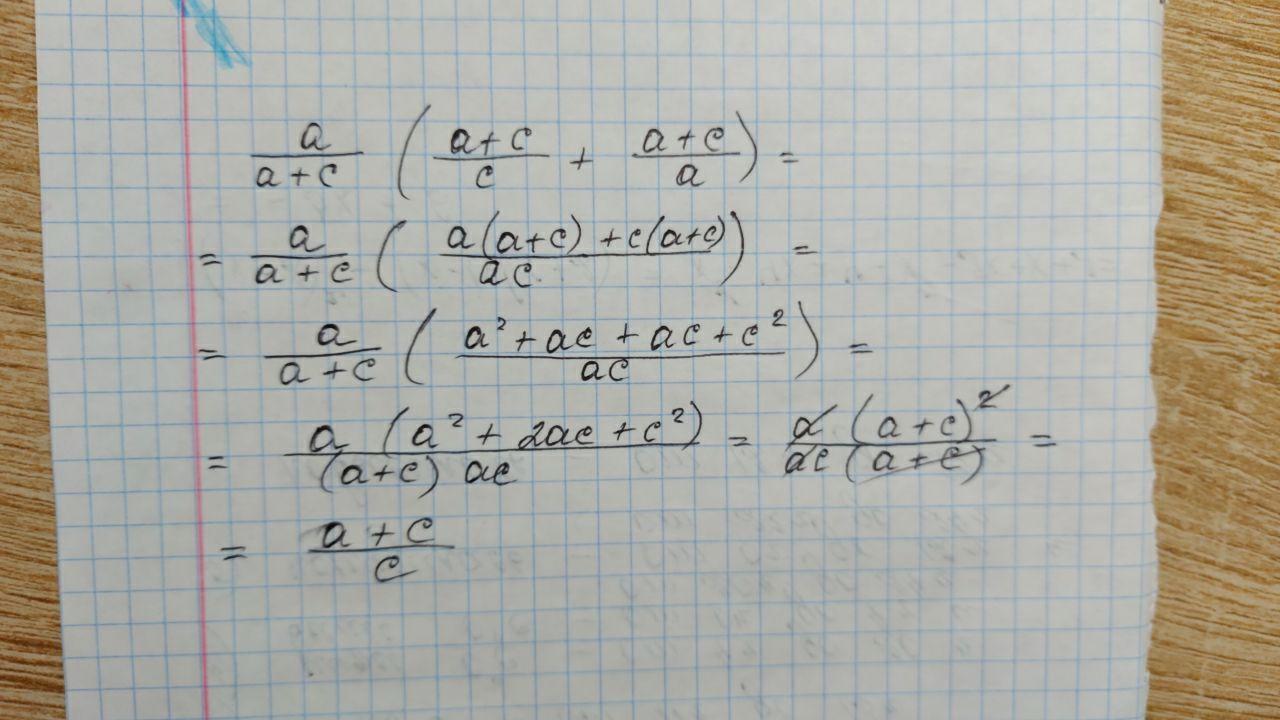 a/(a+c) ( (a+c)/c + (a+c)/a ) =
= a/(a+c) ( (a(a+c) + c(a+c))/ac ) =
= a/(a+c) ( (a² + ac + ac + c²)/ac ) =
= a (a² + 2ac + c²)/((a+c) ac) = a (a+c)²/(ac (a+c)) =
= (a+c)/c